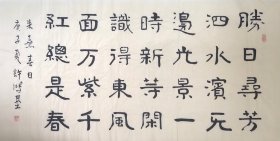 勝日尋芳
泗水濱无
邊光景一
時新等閒
識得東風
面万紫千
紅總是春
朱熹春日
庚子夏許